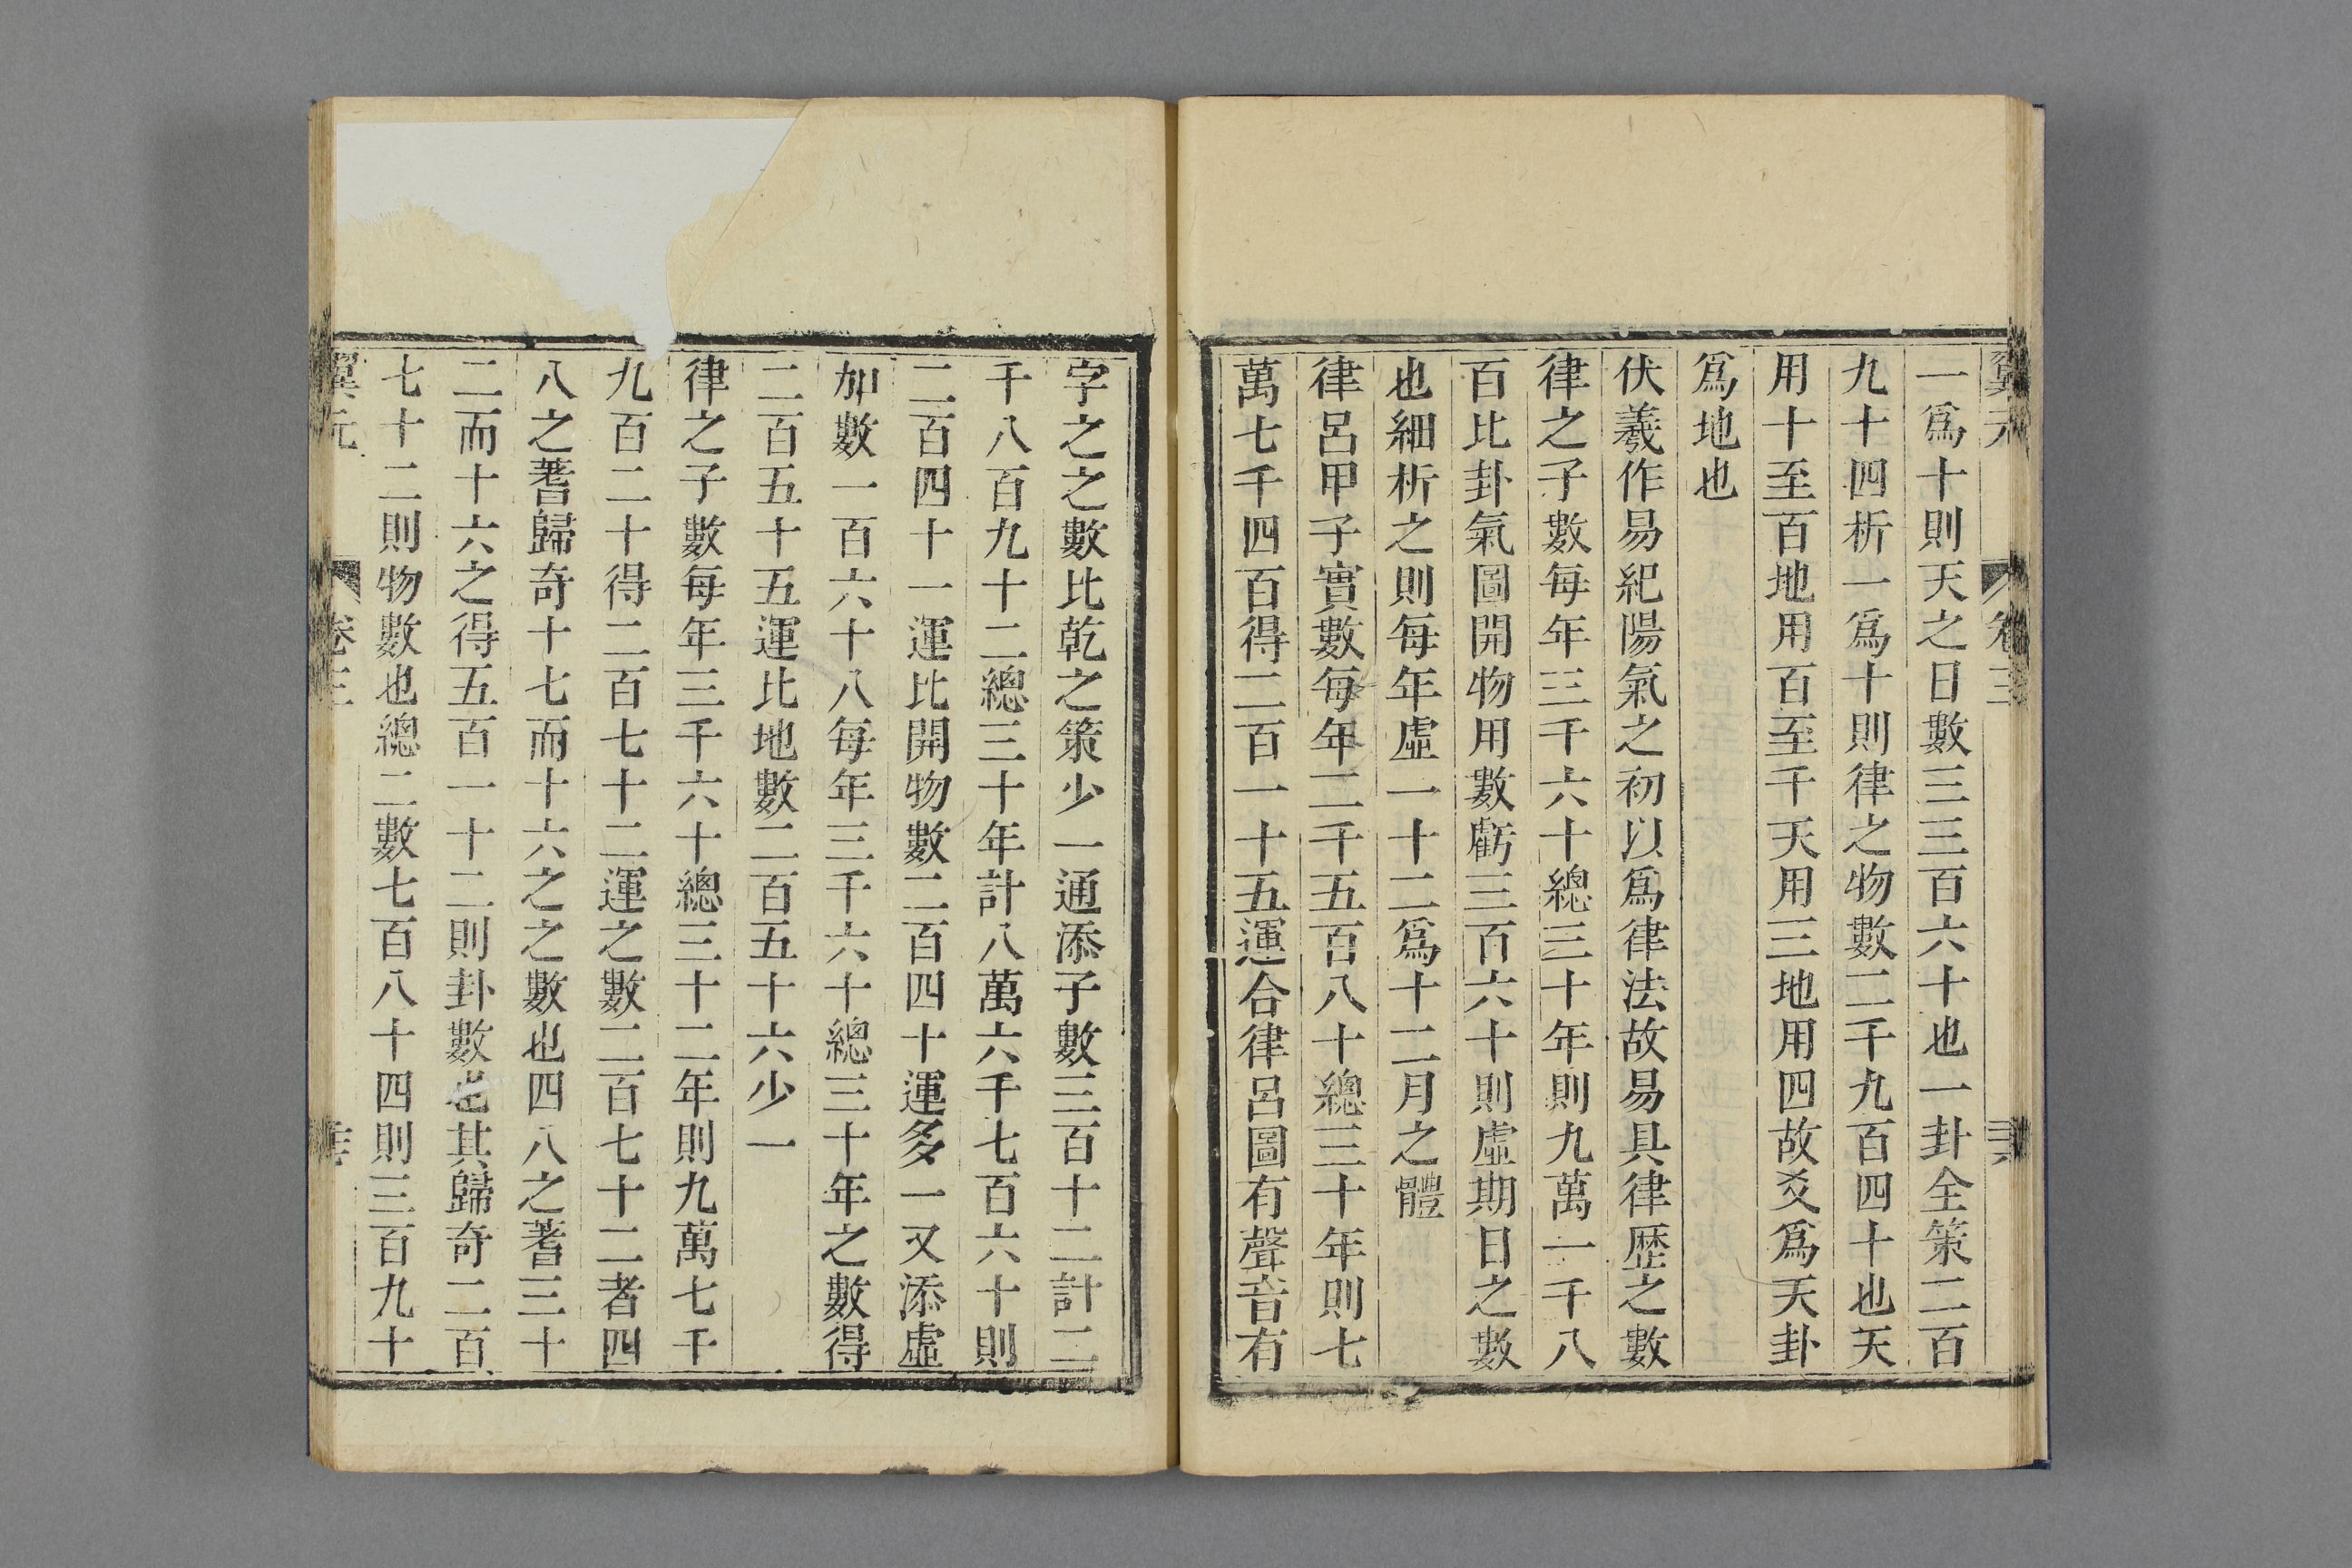 翼元 卷三
一爲十則天之日數三三百六十也一卦全策二百
九十四析一爲十則律之物數二千九百四十也天
用十至百地用百至千天用三地用四故爻爲天卦
爲地也
伏羲作易紀陽氣之初以爲律法故易具律歷之數
律之子數每年三千六十總三十年則九萬一千八
百比卦氣圖開物用數虧三百六十則虛期日之數
也細析之則每年虛一十二爲十二月之體
律呂甲子實數每年二千五百八十總三十年則七
萬七千四百得二百一十五運合律呂圖有聲音有
字之之數比乾之策少一通添子數三百十二計二
千八百九十二總三十年計八萬六千七百六十則
二百四十一運比開物數二百四十運多一又添虛
加數一百六十八每年三千六十總三十年之數得
二百五十五運比地數二百五十六少一
律之子數每年三千六十總三十二年則九萬七千
九百二十得二百七十二運之數二百七十二者四
八之蓍歸奇十七而十六之之數也四八之蓍三十
二而十六之得五百一十二則卦數也其歸奇二百
七十二則物數也總二數七百八十四則三百九十
翼元 卷三